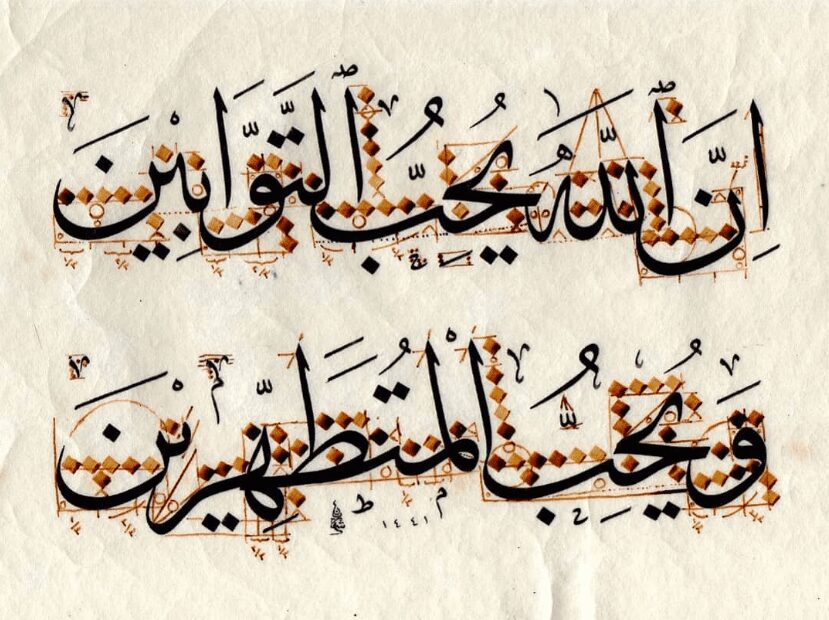 اِنَّ ٱللّٰهَ يُحِبُّ ٱلتَّوَّابِينَ
وَيُحِبُّ الْمُتَطَهِّرِينَ
١٤٤١